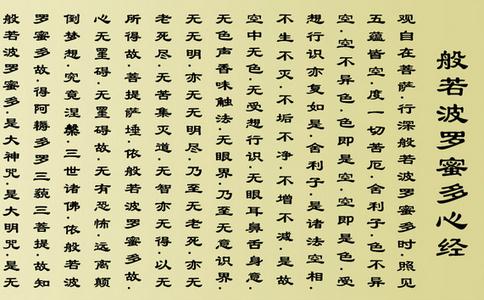 般若波罗蜜多心经
观自在菩萨·行深般若波罗蜜多时·照见
五蕴皆空·度一切苦厄·舍利子·色不异
空·空不异色·色即是空·空即是色·受
想行识亦复如是·舍利子·是诸法空相·
不生不灭·不垢不净·不增不减·是故
空中无色·无受想行识·无眼耳鼻舌身意·
无色声香味触法·无眼界·乃至无意识界·
无无明·亦无无明尽·乃至无老死·亦无
老死尽·无苦集灭道·无智亦无得·以无
所得故·菩提萨埵·依般若波罗蜜多故·
心无罣碍·无罣碍故·无有恐怖·远离颠
倒梦想·究竟涅槃·三世诸佛·依般若波
罗蜜多故·得阿耨多罗三藐三菩提·故知
般若波罗蜜多·是大神咒·是大明咒·是无